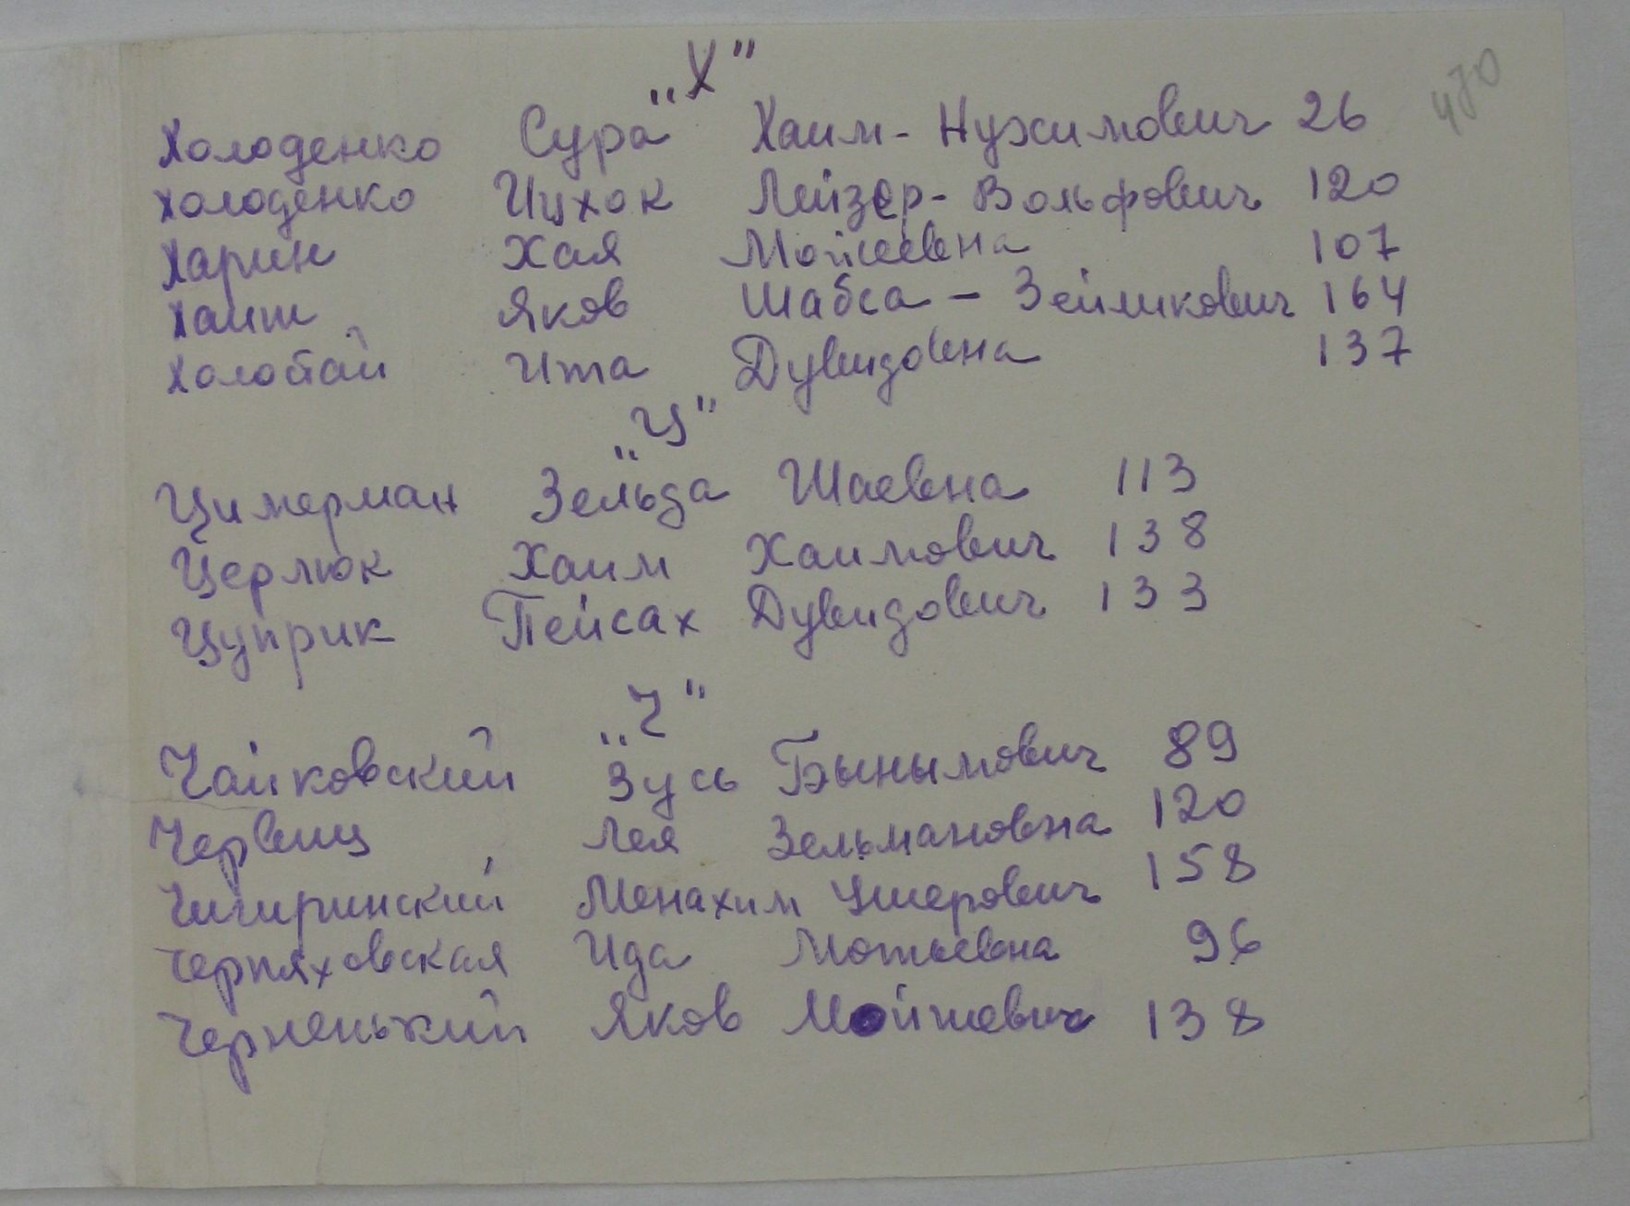 470
„Х"
Холоденко Сура Хаим-Нухимович 26
Холоденко Ицхок Лейзер-Вольфович 120
Харин Хая Мойсеевна 107
Хаит Яков Шабса-Зейликович 164
Холостай Ита Дувидовна 137
„Ц"
Цимерман Зельда Шаевна 113
Церлюк Хаим Хаимович 138
Цуприк Пейсах Дувидович 133
„Ч"
Чайковский Зусь Бынымович 89
Червиц Лея Зельмановна 120
Чигиринский Менахим Ушерович 158
Черняховская Ида Мотьевна 96
Черненький Яков Мойшевич 138